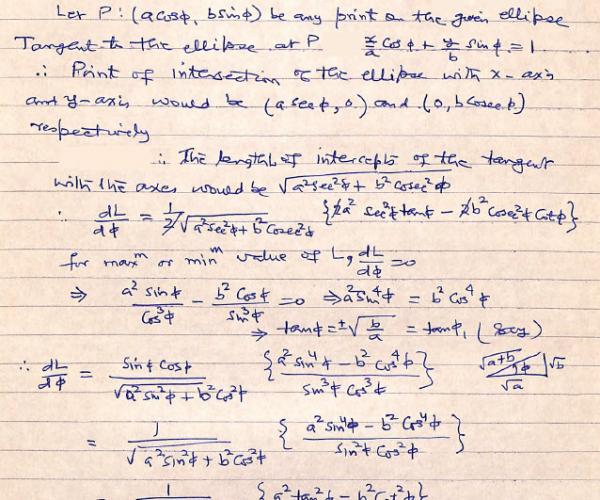 Let P : (a cosϕ, b sinϕ) be any print on the given ellipse
Tangent to the ellipse at P x/a cosϕ + y/b sinϕ = 1
∴ Print of intersection of the ellipse with x-axis
and y-axis would be (a secϕ, 0) and (0, b cosecϕ)
respectively
∴ The length of intercepts of the tangent
with the axes would be √(a² sec²ϕ + b² cosec²ϕ)
∴ dL/dϕ = 1/(2√(a² sec²ϕ + b² cosec²ϕ)) {2a² sec²ϕ tanϕ − 2b² cosec²ϕ cotϕ}
for maxᵐ or minᵐ value of L, dL/dϕ = 0
⇒ a² sinϕ/cos³ϕ − b² cosϕ/sin³ϕ = 0 ⇒ a² sin⁴ϕ = b² cos⁴ϕ
⇒ tanϕ = ±√(b/a) = tanϕ₁ (say)
∴ dL/dϕ = sinϕ cosϕ/√(a² sin²ϕ + b² cos²ϕ) {(a² sin⁴ϕ − b² cos⁴ϕ)/(sin³ϕ cos³ϕ)} √(a+b) ϕ √b √a
= 1/√(a² sin²ϕ + b² cos²ϕ) {(a² sin⁴ϕ − b² cos⁴ϕ)/(sin²ϕ cos²ϕ)}
= 1 {a² tan²ϕ − b² cot²ϕ}